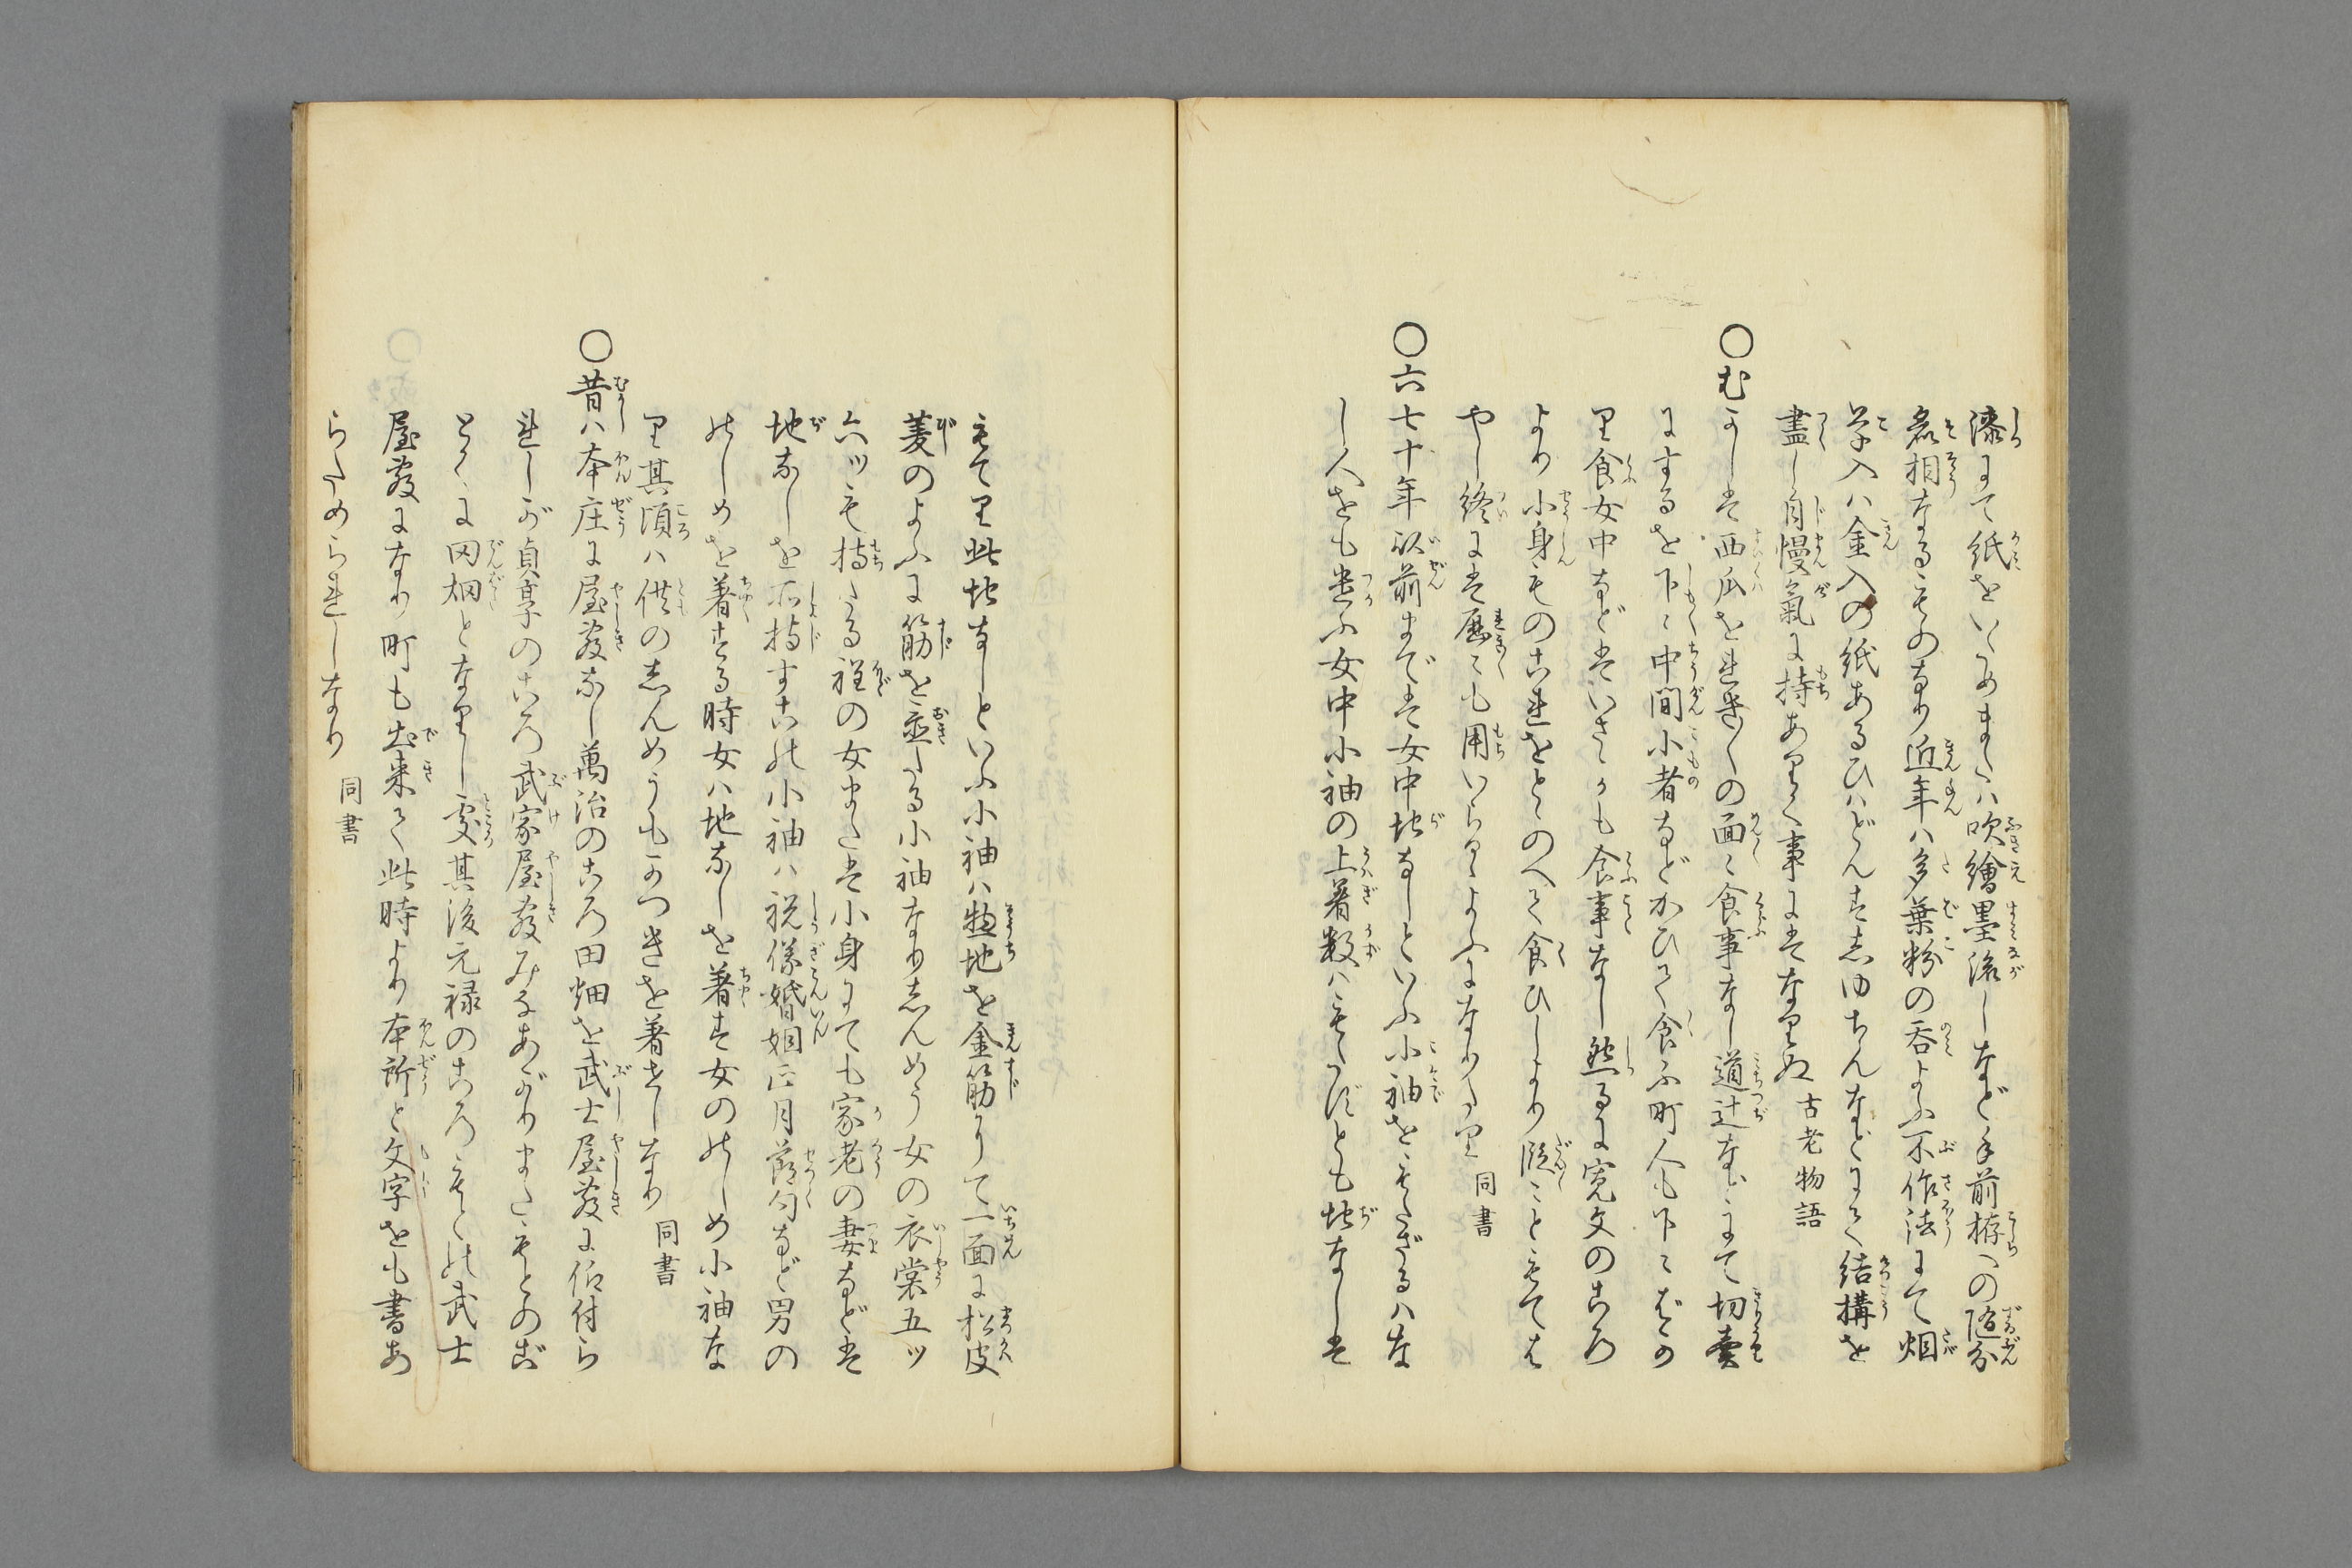 漆にて紙をいためまたハ吹繪墨流しなど手前拵への随分
麁相なるものなり近年ハ多葉粉の呑よふ不作法にて烟
草入ハ金入の紙あるひハどんすしゆちんなどにて結構を
盡し自慢氣に持ありく事にはなりぬ 古老物語
○むかしは西瓜をれき〳〵の面〻食事なし道辻なドにて切賣
にするを下〻中間小者などかひて食ふ町人も下〻ばかり
里食女中などはいさゝかも食事なし然るに寛文のころ
より小身ものこれをとゝのへて食ひしより段〻ともては
やし終には歴〻も用いらるゝよふになりたり 同書
○六七十年以前までは女中地なしといふ小袖をもたざるハな
し人をも遣ふ女中小袖の上着数ハもたずとも地なしは
もてり此地なしといふ小袖ハ惣地を金筋にて一面に松皮
菱のよふに筋を置たる小袖なりしんめう女の衣裳五ツ
六ツも持たる程の女または小身にても家老の妻などは
地なしを所持すこの小袖ハ祝儀婚姻正月節句など男の
のしめを着する時女ハ地なしを着す女ののしめ小袖な
り其頃ハ供のしんめうもかつきを着せしなり 同書
○昔ハ本庄に屋敷なし萬治のころ田畑を武士屋敷に仰付ら
れしが貞享のころ武家屋敷みなあがりまたもとのご
とくに田畑となりし處其後元禄のころもとの武士
屋敷になり町も出来て此時より本所と文字をも書あ
らためられしなり 同書